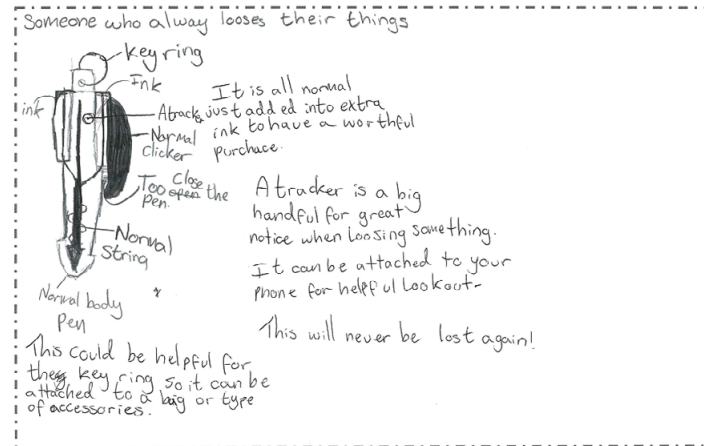 Someone who alway looses their things
Key ring
Ink
ink
Atrack
Normal
clicker
Close
Too open the
pen.
Normal
String
Normal body
Pen
It is all normal
just added into extra
ink to have a worthful
purchace.
A tracker is a big
handful for great
notice when loosing something.
It can be attached to your
phone for helpful lookout-
This will never be lost again!
This could be helpful for
the key ring so it can be
attached to a bag or type
of accessories.